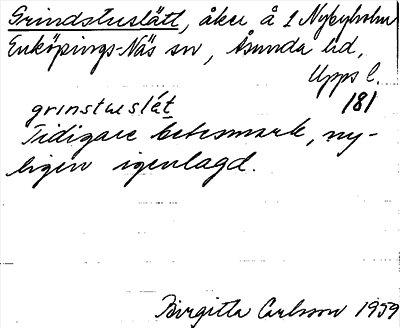 Grindstuslätt, åker å 1 Nybyholm
Enköpings-Näs sn, Åsunda hd,
Upps l.
181
grinstuslä́t
Tidigare betesmark, ny-
ligen igenlagd.
Birgitta Carlsson 1959